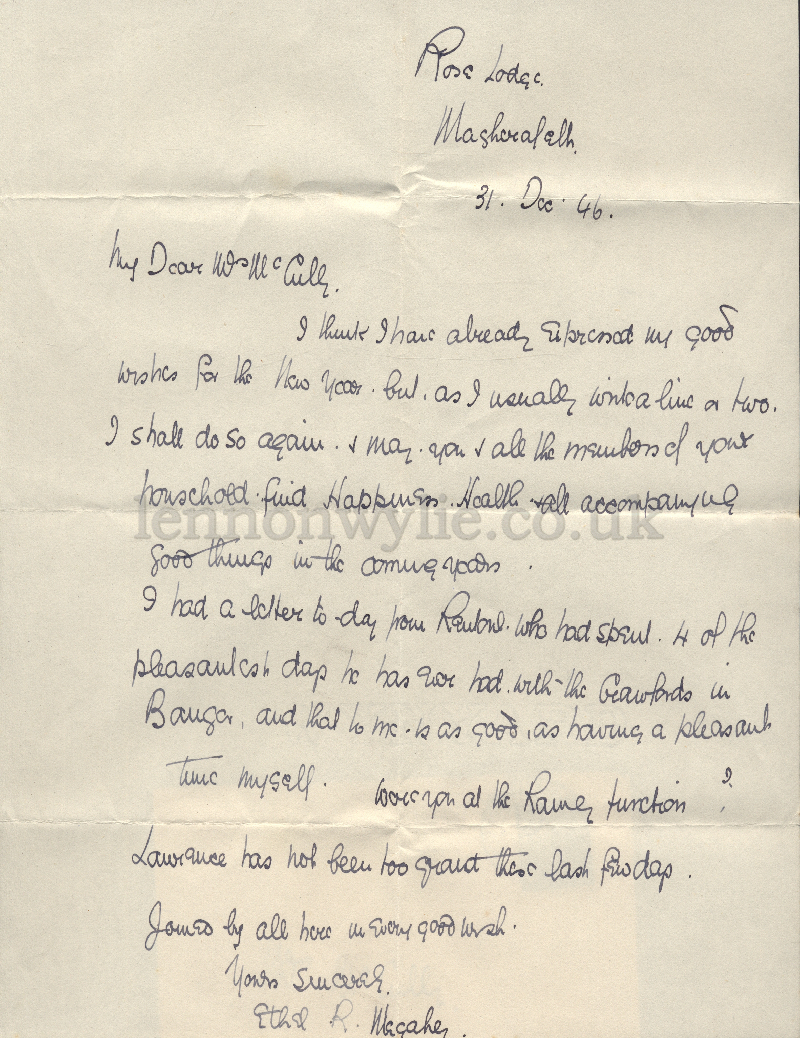 Rose Lodge.
Magherafelt.
31. Dec. 46.
My Dear Mrs McCully.
I think I have already expressed my good
wishes for the New Year. but, as I usually write a line or two.
I shall do so again. & may. you & all the members of your
household. find Happiness. Health & all accompanying
lennonwylie.co.uk
good things in the coming years.
I had a letter to-day from who had spent. 4 of the
pleasantest days he has ever had. with the Crawfords in
Bangor, and that to me. is as good, as having a pleasant
time myself. Were you at the Rainey function?
Lawrence has not been too grand these last few days.
Joined by all here in every good wish.
Yours Sincerely.
Ethel R. Megahey.